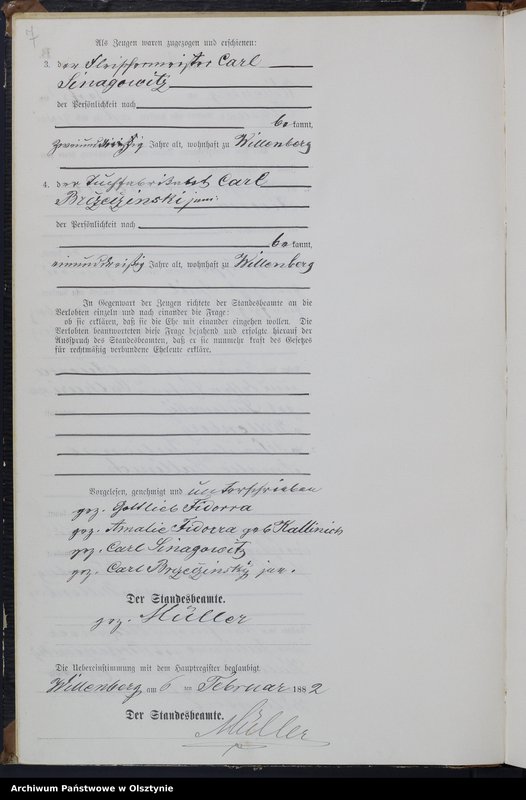 7
Als Zeugen waren zugezogen und erschienen:
3. der Fleischermeister Carl
Sinagowitz
der Persönlichkeit nach
bekannt,
zweiunddreißig Jahre alt, wohnhaft zu Willenberg
4. der Tuchfabrikant Carl
Brzezinski jun:
der Persönlichkeit nach
bekannt,
einunddreißig Jahre alt, wohnhaft zu Willenberg
In Gegenwart der Zeugen richtete der Standesbeamte an die
Verlobten einzeln und nach einander die Frage:
ob sie erklären, daß sie die Ehe mit einander eingehen wollen. Die
Verlobten beantworteten diese Frage bejahend und erfolgte hierauf der
Ausspruch des Standesbeamten, daß er sie nunmehr kraft des Gesetzes
für rechtmäßig verbundene Eheleute erkläre.
Vorgelesen, genehmigt und unterschrieben
gez. Gottlieb Fidorra
gez. Amalie Fidorra geb Kallinich
gez. Carl Sinagowitz
gez. Carl Brzezinski jun.
Der Standesbeamte.
gez. Müller
Die Uebereinstimmung mit dem Hauptregister beglaubigt
Willenberg am 6 ten Februar 1882
Der Standesbeamte.
Müller
Archiwum Państwowe w Olsztynie